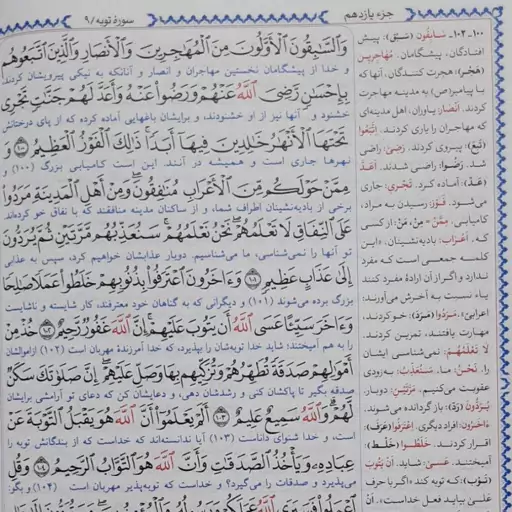 جزء یازدهم
سورهٔ توبه/۹
وَالسَّابِقُونَ الْأَوَّلُونَ مِنَ الْمُهَاجِرِينَ وَالْأَنصَارِ وَالَّذِينَ اتَّبَعُوهُم
و خدا از پیشگامان نخستین مهاجران و انصار و آنانکه به نیکی پیرویشان کردند،
بِإِحْسَانٍ رَّضِيَ اللَّهُ عَنْهُمْ وَرَضُوا عَنْهُ وَأَعَدَّ لَهُمْ جَنَّاتٍ تَجْرِي
خشنود و آنها نیز از او خشنودند، و برایشان باغهایی آماده کرده که از پای درختانش
تَحْتَهَا الْأَنْهَارُ خَالِدِينَ فِيهَا أَبَدًا ذَٰلِكَ الْفَوْزُ الْعَظِيمُ ۝۱۰۰ وَ
نهرها جاری است و همیشه در آنند. این است کامیابی بزرگ (۱۰۰) و
مِمَّنْ حَوْلَكُم مِّنَ الْأَعْرَابِ مُنَافِقُونَ وَمِنْ أَهْلِ الْمَدِينَةِ مَرَدُوا
برخی از بادیه‌نشینان اطراف شما، و از ساکنان مدینه منافقند که با نفاق خو کرده‌اند
عَلَى النِّفَاقِ لَا تَعْلَمُهُمْ نَحْنُ نَعْلَمُهُمْ سَنُعَذِّبُهُم مَّرَّتَيْنِ ثُمَّ يُرَدُّونَ
تو آنها را نمی‌شناسی، ما می‌شناسیم. دوبار عذابشان خواهیم کرد، سپس به عذابی
إِلَىٰ عَذَابٍ عَظِيمٍ ۝۱۰۱ وَآخَرُونَ اعْتَرَفُوا بِذُنُوبِهِمْ خَلَطُوا عَمَلًا صَالِحًا
بزرگ برده می‌شوند (۱۰۱) و دیگرانی که به گناهان خود معترفند، کار شایسته و ناشایست
وَآخَرَ سَيِّئًا عَسَى اللَّهُ أَن يَتُوبَ عَلَيْهِمْ إِنَّ اللَّهَ غَفُورٌ رَّحِيمٌ ۝۱۰۲ خُذْ مِنْ
را به هم آمیختند؛ شاید خدا توبه‌شان را بپذیرد، که خدا آمرزندهٔ مهربان است (۱۰۲) ازاموالشان
أَمْوَالِهِمْ صَدَقَةً تُطَهِّرُهُمْ وَتُزَكِّيهِم بِهَا وَصَلِّ عَلَيْهِمْ إِنَّ صَلَاتَكَ سَكَنٌ
صدقه بگیر تا پاکشان کنی و رشدشان دهی، و دعایشان کن که دعای تو آرامشی برایشان
لَّهُمْ وَاللَّهُ سَمِيعٌ عَلِيمٌ ۝۱۰۳ أَلَمْ يَعْلَمُوا أَنَّ اللَّهَ هُوَ يَقْبَلُ التَّوْبَةَ عَنْ
است، و خدا شنوای داناست (۱۰۳) آیا ندانسته‌اند که خداست که از بندگانش توبه را
عِبَادِهِ وَيَأْخُذُ الصَّدَقَاتِ وَأَنَّ اللَّهَ هُوَ التَّوَّابُ الرَّحِيمُ ۝۱۰۴ وَقُلِ
می‌پذیرد و صدقات را می‌گیرد؟ و خداست که توبه‌پذیر مهربان است (۱۰۴) و بگو:
اعْمَلُوا فَسَيَرَى اللَّهُ عَمَلَكُمْ وَرَسُولُهُ
۱۰۰-۱۰۴- سَابِقُون (سَبَقَ): پیش
افتادگان، پیشگامان. مُهاجِرِینَ
(هَجَرَ): هجرت کنندگان، آنها که
با پیامبر(ص) به مدینه مهاجرت
کردند. أنصار: یاوران، اهل مدینه‌ای
که مهاجران را یاری کردند. اِتَّبَعُوا
(تَبِعَ): پیروی کردند. رَضِیَ: راضی
شد. رَضُوا: راضی شدند. أعَدَّ
(عَدَّ): آماده کرد. تَجْرِی: جاری
می‌شود. فَوْز: رسیدن به مراد،
کامیابی. مِمَّنْ = مِنْ، مَنْ: از کسی
که. أعْراب: بادیه‌نشینان. «این
کلمه جمعی است که مفرد
ندارد و اگر از آن ارادهٔ مفرد کنند
یاء نسبت به آخرش می‌آورند:
اعرابی». مَرَدُوا (مَرَدَ): خو کردند،
مهارت یافتند، تمرین کردند.
لاتَعْلَمُهُمْ: نمی‌شناسی ایشان
را. نَحْنُ: ما. سَنُعَذِّبُ: به‌زودی
عقوبت می‌کنیم. مَرَّتَیْنِ: دوبار.
یُرَدُّونَ (رَدَّ): باز گردانده می‌شوند.
آخَرُونَ: افراد دیگری. اِعْتَرَفُوا (عَرَفَ):
اقرار کردند. خَلَطُوا (خَلَطَ):
آمیختند. عَسَیٰ: شاید. أنْ یَتُوبَ
(تَوْب): که توبه کند «اگر با حرف
عَلیٰ بیاید فعل خداست». أنْ